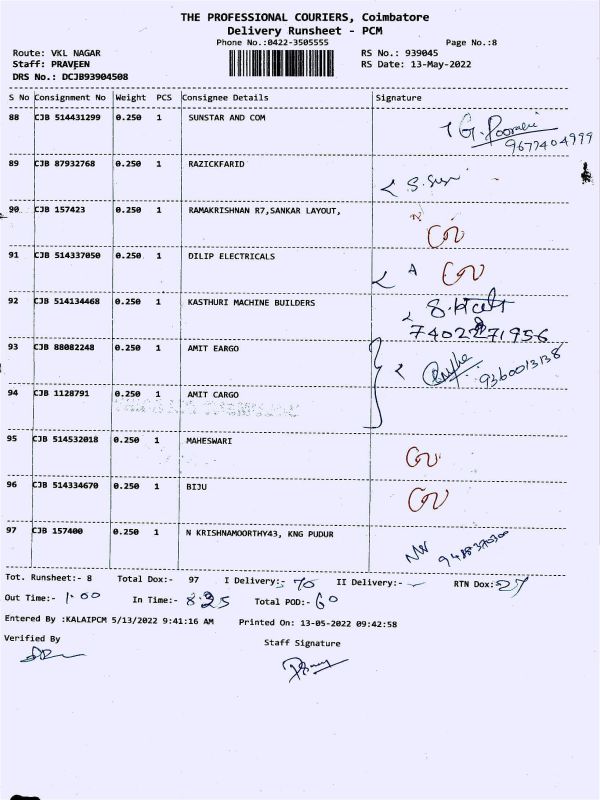 THE PROFESSIONAL COURIERS, Coimbatore
Delivery Runsheet - PCM
Phone No.:0422-3505555 Page No.:8
Route: VKL NAGAR RS No.: 939045
Staff: PRAVEEN RS Date: 13-May-2022
DRS No.: DCJB93904508
S No Consignment No Weight PCS Consignee Details Signature
88 CJB 514431299 0.250 1 SUNSTAR AND COM
9677404999
89 CJB 87932768 0.250 1 RAZICKFARID
90 CJB 157423 0.250 1 RAMAKRISHNAN R7,SANKAR LAYOUT,
91 CJB 514337050 0.250 1 DILIP ELECTRICALS
92 CJB 514134468 0.250 1 KASTHURI MACHINE BUILDERS
93 CJB 88082248 0.250 1 AMIT EARGO
9360013138
94 CJB 1128791 0.250 1 AMIT CARGO
95 CJB 514532018 0.250 1 MAHESWARI
96 CJB 514334670 0.250 1 BIJU
97 CJB 157400 0.250 1 N KRISHNAMOORTHY43, KNG PUDUR
Tot. Runsheet:- 8 Total Dox:- 97 I Delivery:- 70 II Delivery:- - RTN Dox:- 27
Out Time:- 1.00 In Time:- 8.25 Total POD:- 60
Entered By :KALAIPCM 5/13/2022 9:41:16 AM Printed On: 13-05-2022 09:42:58
Verified By Staff Signature